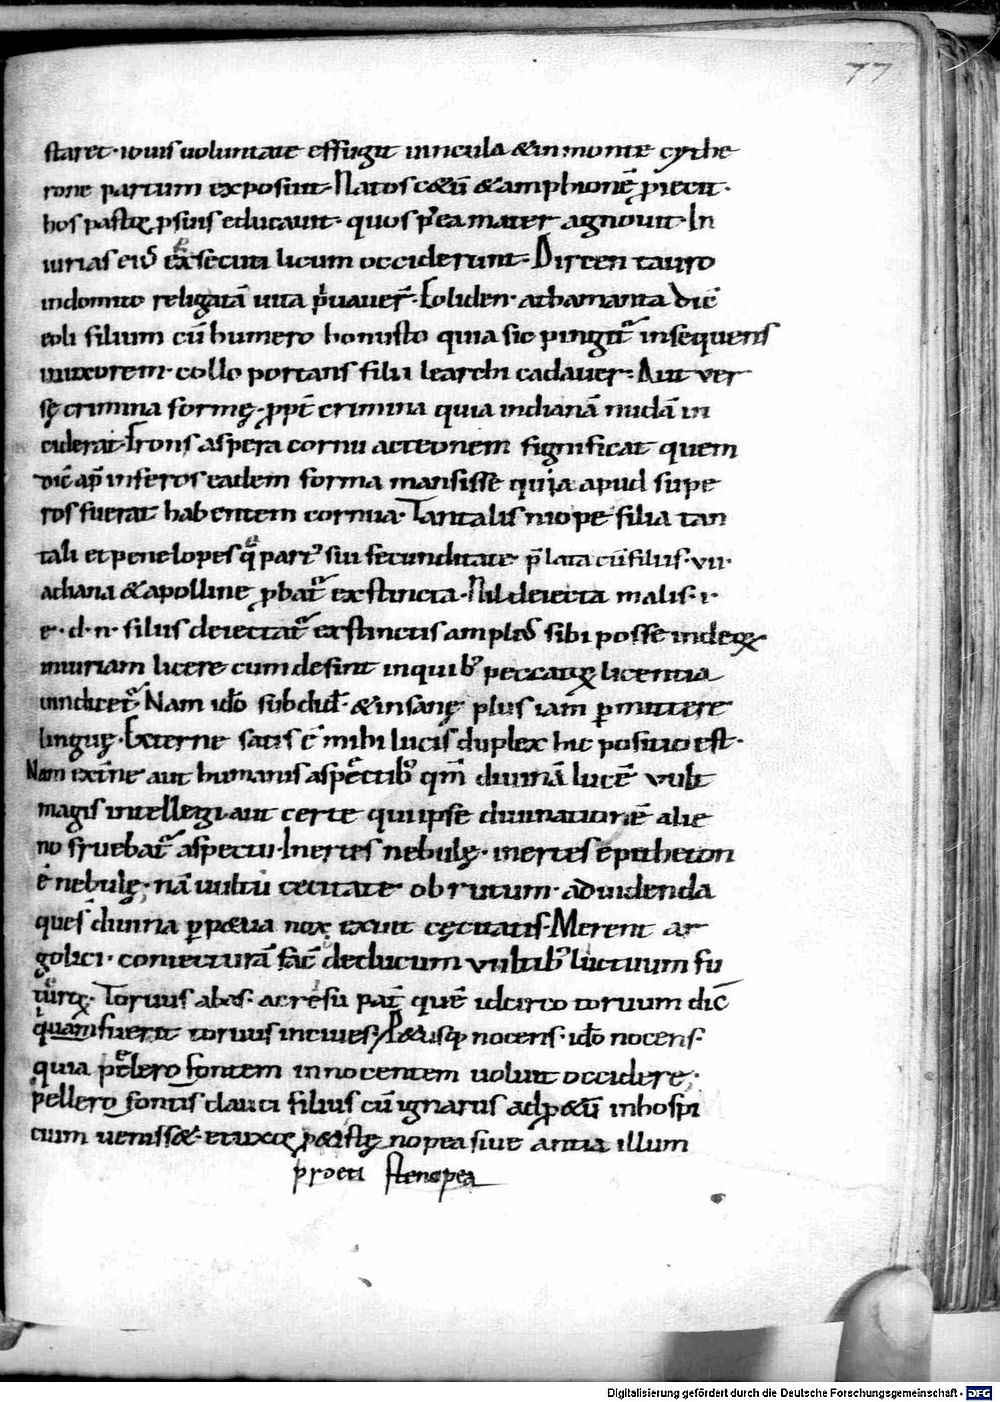 77
staret· iouis uoluntate effugit uincula &in monte cythe
rone partum exposuit· Natos c&ū &amphionē p̄iecit·
hos pastor p̄sius educauit· quos p̄ea mater agnouit· In
iurias eiꝰ exsecuti licum occiderunt· Dircen tauro
indomito religatā uita p̄uauer̄· Eoliden· athamanta dic̄
eoli filium cū humero honusto quia sic pingit᷒ insequens
uuxorem· collo portans filii learchi cadauer· Aut ver
sę crimina formę· ꝓpt̄ crimina quia indianā nudā in
ciderat· Frons aspera cornu acteonem significat quem
dic̄ ap̄ inferos eadem forma mansisse quia apud supe
ros fuerat habentem cornua· Tantalis niope filia tan
tali et penelopes q̄ part᷒ sui fecunditate p̄lata cū filiis· vii·
adiana &apolline ꝓbat᷒ exstincta· Nil deiecta malis· i·
e· d· n· filiis deiectat᷒ exstinctis ampliꝰ sibi posse indeorꝝ
iniuriam licere cum desint inquibꝰ peccatorꝝ licentia
uindicet᷒· Nam id̄o subdid̄· &insanę plus iam p̱mittere
linguę· Externe satis ē mihi lucis duplex hic positio est·
Nam ext̄ne aut humanis aspectibꝰ qm̄ diuinā lucē vult
magis intellegi· aut certe qui ipse diuinationē alie
no fruebat᷒ aspectu· Inertes nebulę· inertes epitheton
ē nebulę· nā uultū cecitate obrutum· ad uidenda
ques diuina p̱p&ua nox exuit cęcitatis· Merent ar
golici· coniecturā fac̄ de ducum vultibꝰ luctuum fu
turorꝝ· Toruus abas· acresii pat̄ quē idcirco toruum dic̄
quam fuerit toruus in ciues· P&usq nocens· id̄o nocens·
quia pellero fontem innocentem uoluit occidere·
pellero fontis clauci filius cū ignarus ad ꝓ&ū in hospi
cium ueniss&· et uxor ꝓ& istę nopea siue antia illum
proeti stenopea
Digitalisierung gefördert durch die Deutsche Forschungsgemeinschaft - DFG